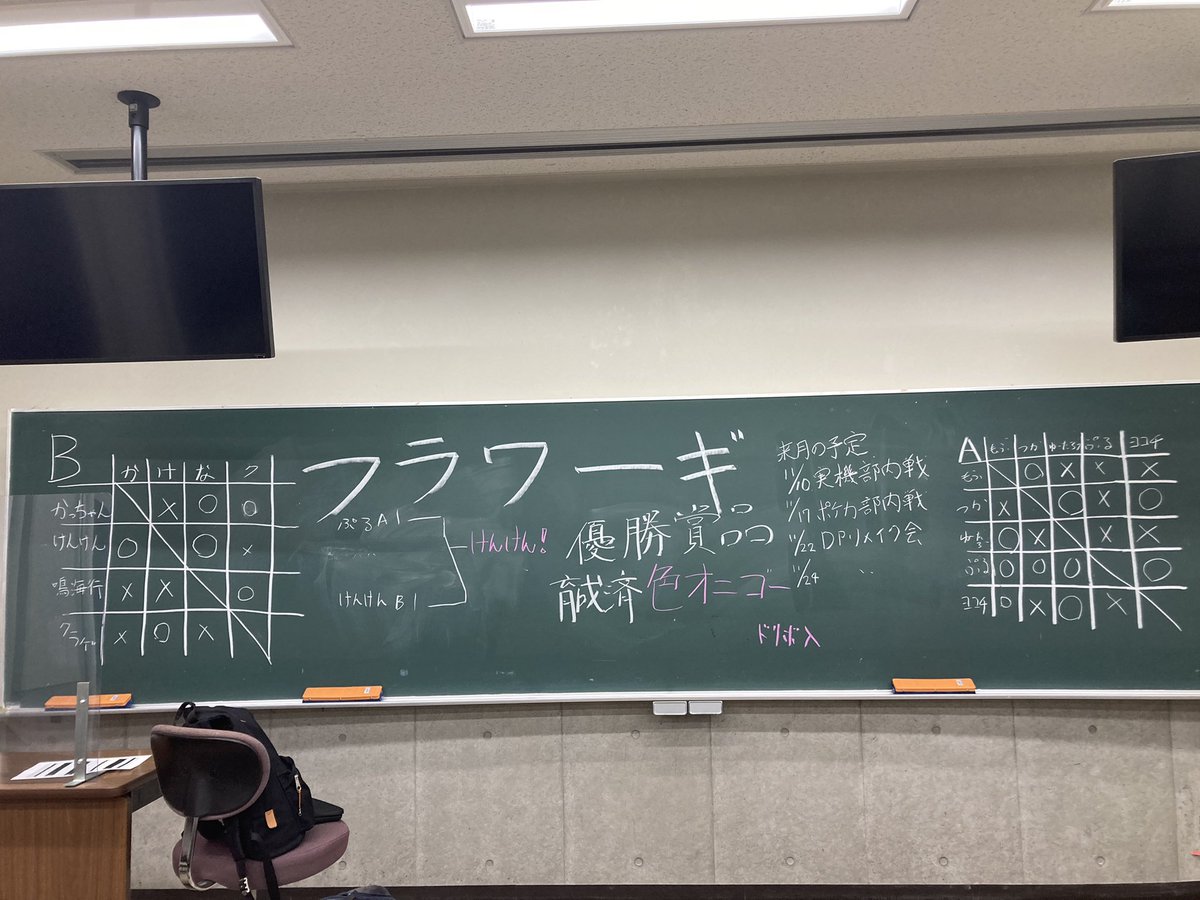 B
か け な ク
かっちゃん × ○ ○
けんけん ○ ○ ×
鳴海行 × × ○
クラゲ × ○ ×
フラワーギ
ぷるA1
けんけん!!
けんけんB1
優勝賞品
育成済色オニゴー
ドリボ入
来月の予定
11/10 実機部内戦
11/17 ポケカ部内戦
11/22 DPリメイク会
11/24 〃
A
もぅ つか ゆーたろう ぷる ヨコチ
もぅ ○ × × ×
つか × ○ × ○
ゆーたろ ○ × × ×
ぷる ○ ○ ○ ○
ヨコチ ○ × ○ ×